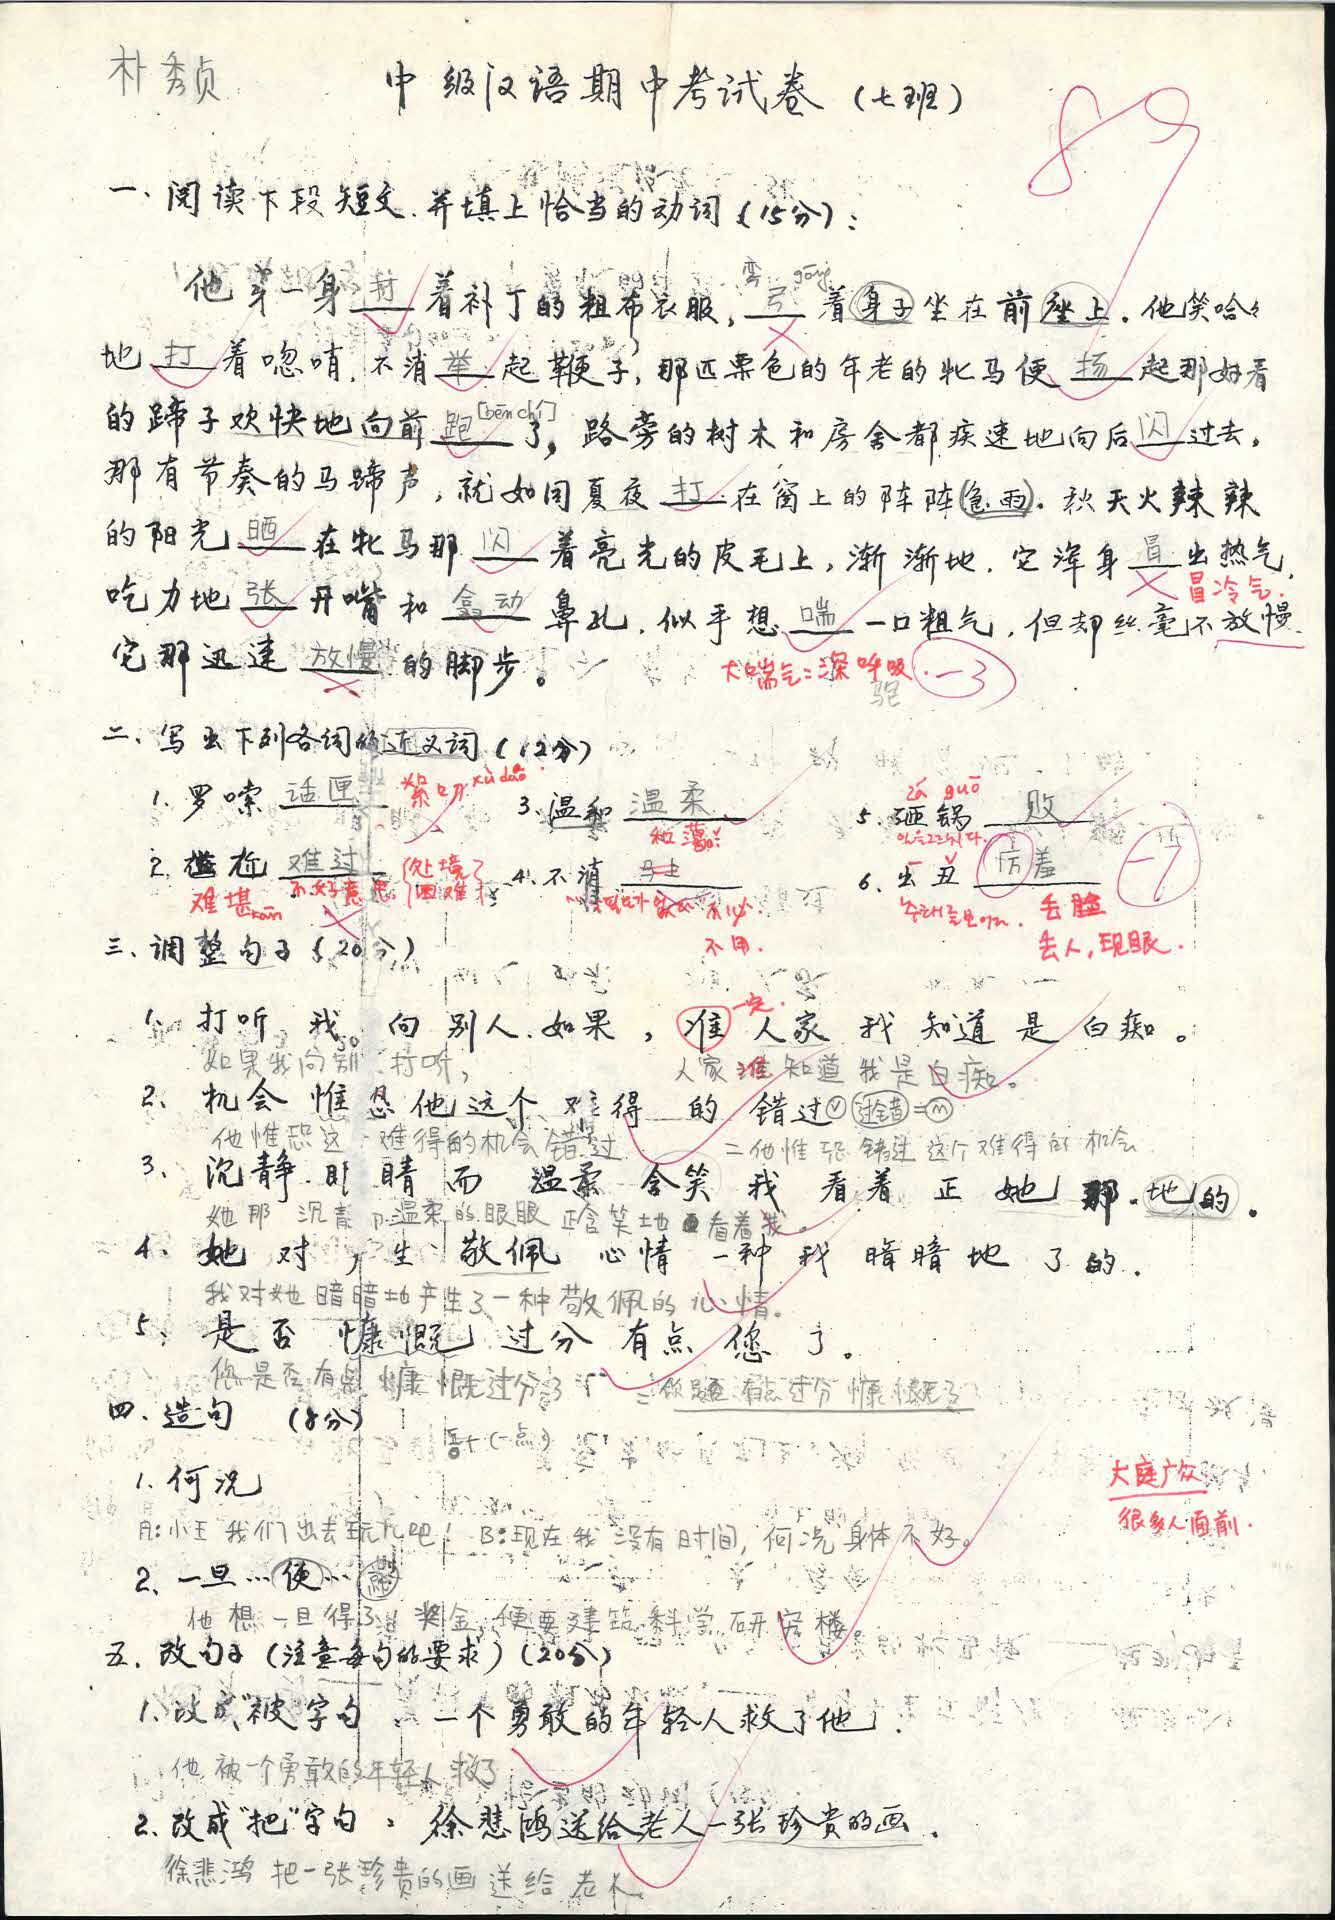 朴秀贞
中级汉语期中考试卷（七班）
89
一、阅读下段短文、并填上恰当的动词（15分）：
弯 gōng
他穿一身 打 着补丁的粗布衣服，弓 着身子坐在前座上。他笑哈々
地 打 着唿哨，不消 举 起鞭子，那匹栗色的年老的牝马便 扬 起那好看
的蹄子欢快地向前 跑 [bēn chí] 了，路旁的树木和房舍都疾速地向后 闪 过去，
那有节奏的马蹄声，就如同夏夜 打 在窗上的阵阵急雨。秋天火辣辣
的阳光 晒 在牝马那 闪 着亮光的皮毛上，渐渐地，它浑身 冒 出热气，
冒冷气.
吃力地 张 开嘴和 翕动 鼻孔，似乎想 喘 一口粗气，但却丝毫不放慢
它那迅速 放慢 的脚步。
大喘气：深呼吸. -3
二、写出下列各词的近义词（12分）
1. 罗嗦 话匣 絮叨 xù dao
3. 温和 温柔
5. 砸锅 败
zá guō
2. 尴尬 难过
难堪 kān 不好意思 (处境困难)
4. 不消 马上
不必.
不用.
6. 出丑 厉羞
-7
丢脸
丢人，现眼.
三、调整句子（20分）
1. 打听 我 向 别人 如果，准 人家 我 知道 是 白痴。
一定.
如果我向别 打听， 人家准知道我是白痴。
2. 机会 惟恐 他 这个 难得 的 错过
他惟恐这 难得的机会错过 = 他惟恐错过这个难得的机会
3. 沉静 眼睛 而 温柔 含笑 我 看着 正 她 那 地 的.
她那沉静 温柔的眼睛正含笑地看着我。
4. 她 对，生 敬佩 心情 一种 我 暗暗地 了 的.
我对她暗暗地产生了一种敬佩的心情。
5. 是否 慷慨 过分 有点 您 了。
您是否有点慷慨过分了 = 您是否有点过分慷慨了
四、造句 （8分）
1. 何况
A: 小王我们出去玩儿吧！ B: 现在我没有时间，何况身体不好。
大庭广众
很多人面前.
2. 一旦…便…
他想一旦得了奖金，便要建筑科学研究楼
五、改句子（注意每句的要求）（20分）
1. 改成“被”字句 、一个勇敢的年轻人救了他.
他被一个勇敢的年轻人救了
2. 改成“把”字句： 徐悲鸿送给老人一张珍贵的画.
徐悲鸿把一张珍贵的画送给老人